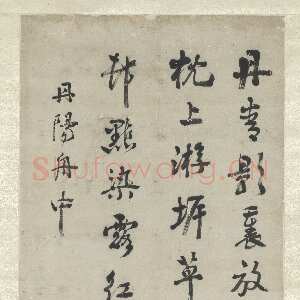 丹青影裏放
枕上游蜂草
邨點染露紅
丹陽舟中
Shufawang.CN